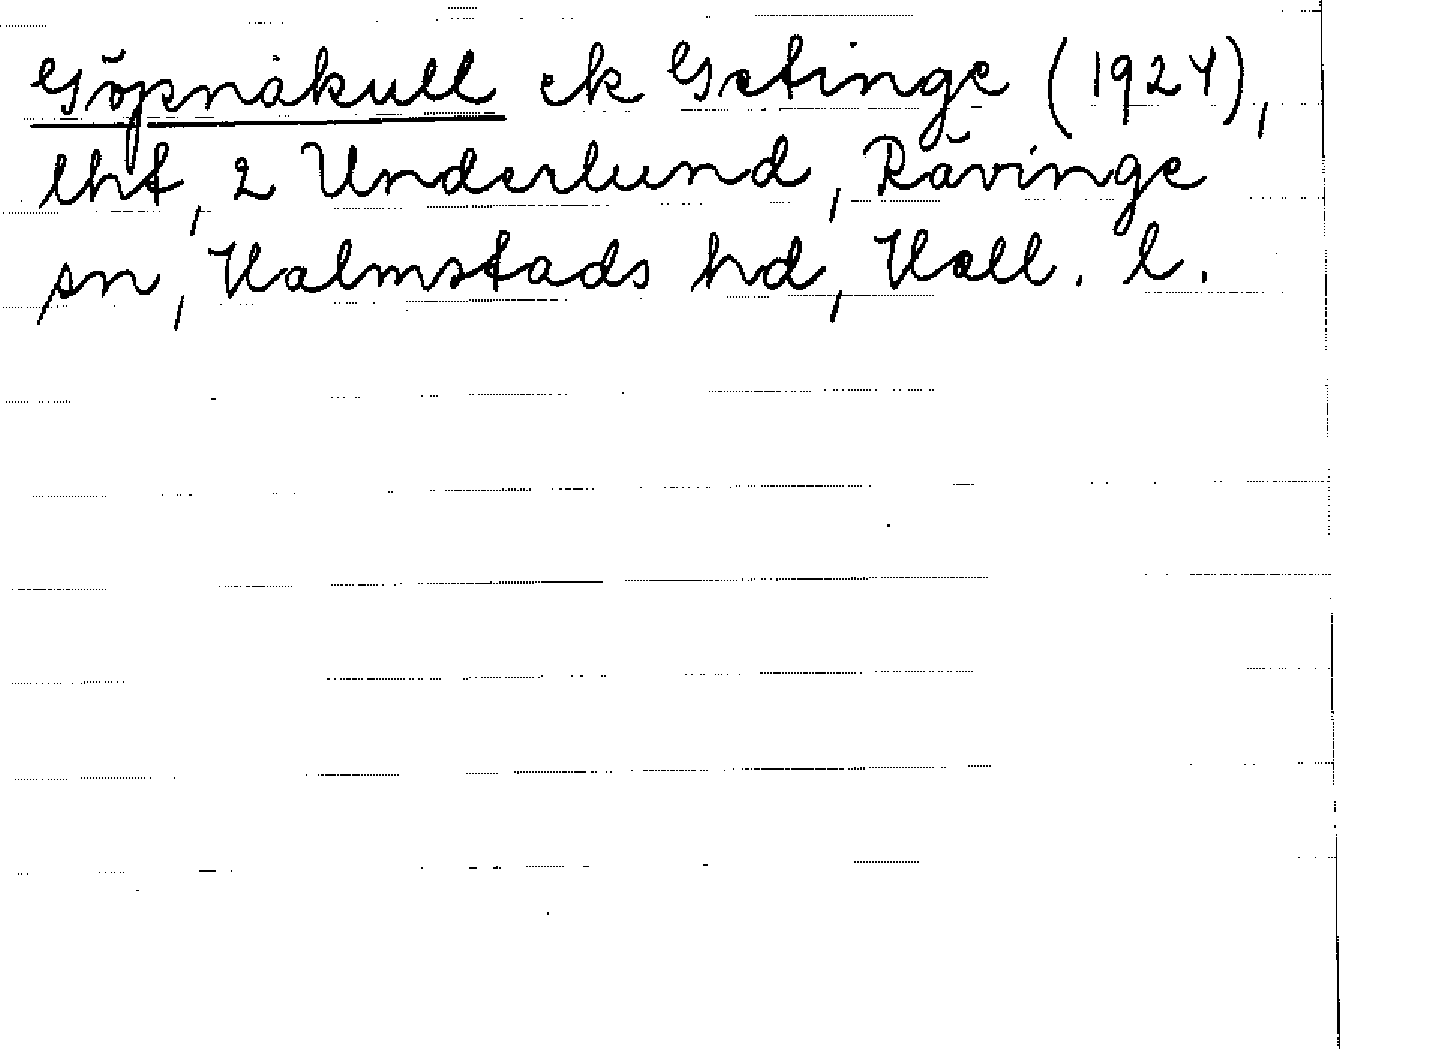 Göpnåkull ek Getinge (1924),
lht, 2 Underlund, Rävinge
sn, Halmstads hd, Hall. l.